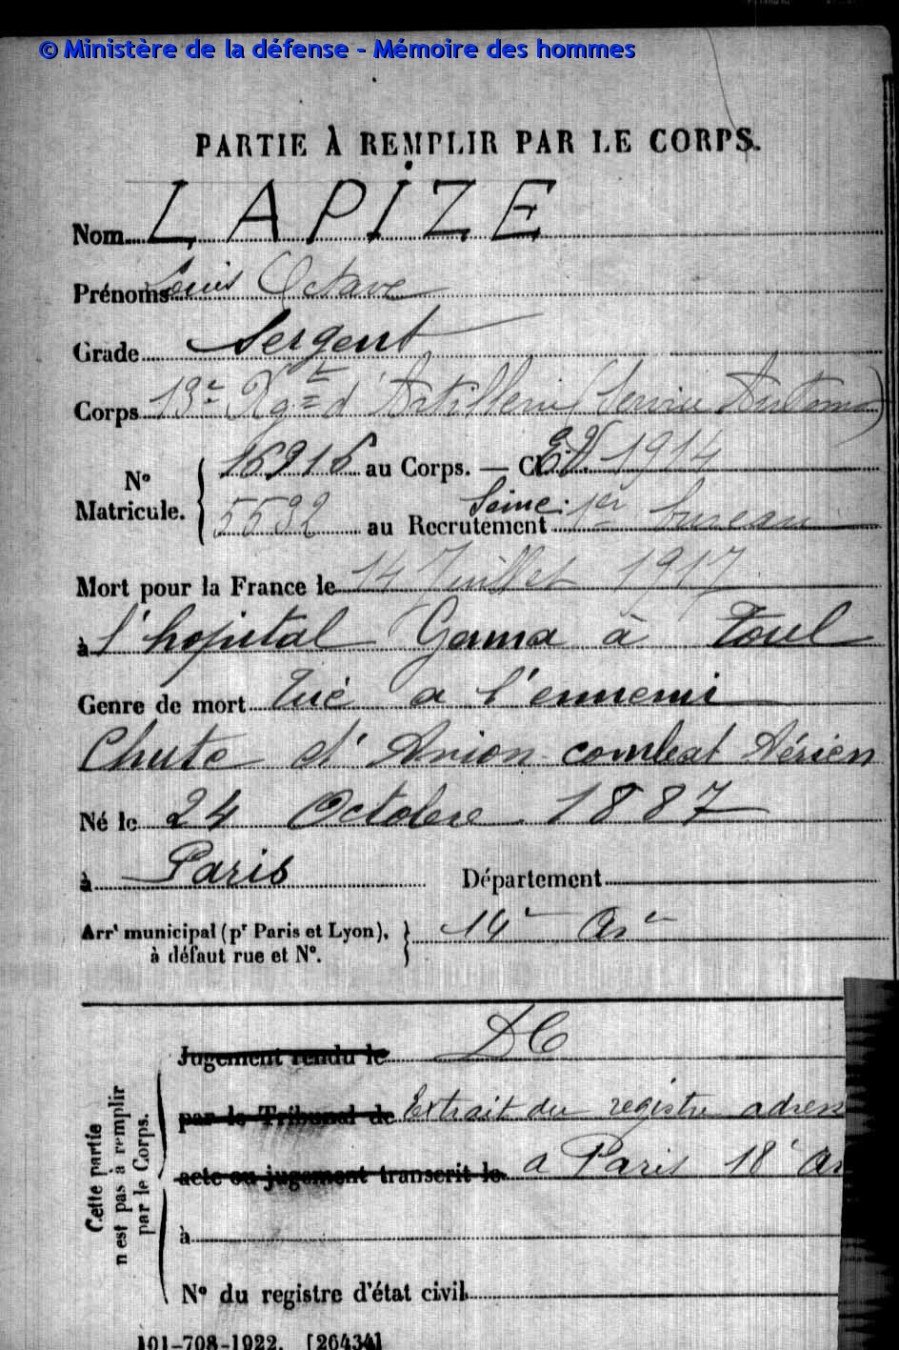 © Ministère de la défense - Mémoire des hommes
PARTIE À REMPLIR PAR LE CORPS.
Nom LAPIZE
Prénoms Louis Octave
Grade Sergent
Corps 13e Rgt d'Artillerie (Service Automo)
No Matricule. { 16916 au Corps. — Cl. EV 1914
5592 au Recrutement Seine 1er bureau
Mort pour la France le 14 Juillet 1917
à l'hopital Gama à Toul
Genre de mort Tué a l'ennemi
Chute d'Avion combat Aérien
Né le 24 Octobre 1887
à Paris Département
Arrt municipal (pr Paris et Lyon), } 14e Are
à défaut rue et No.
Cette partie n'est pas à remplir par le Corps.
Jugement rendu le DC
par le Tribunal de Extrait du registre adres
acte ou jugement transcrit le a Paris 18e Ar
à
No du registre d'état civil
101-708-1922. [26434]